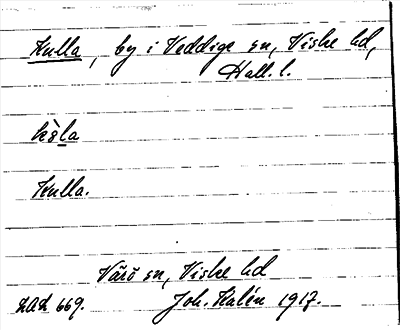 Kulla, by i Veddige sn, Viske hd,
Hall. l.
Kulla.
Värö sn, Viske hd
LAL 669. Joh. Kalén 1917.